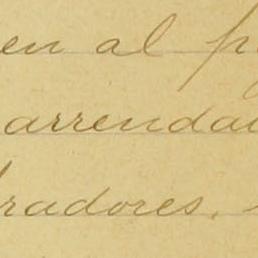 en al p
arrenda
radores,